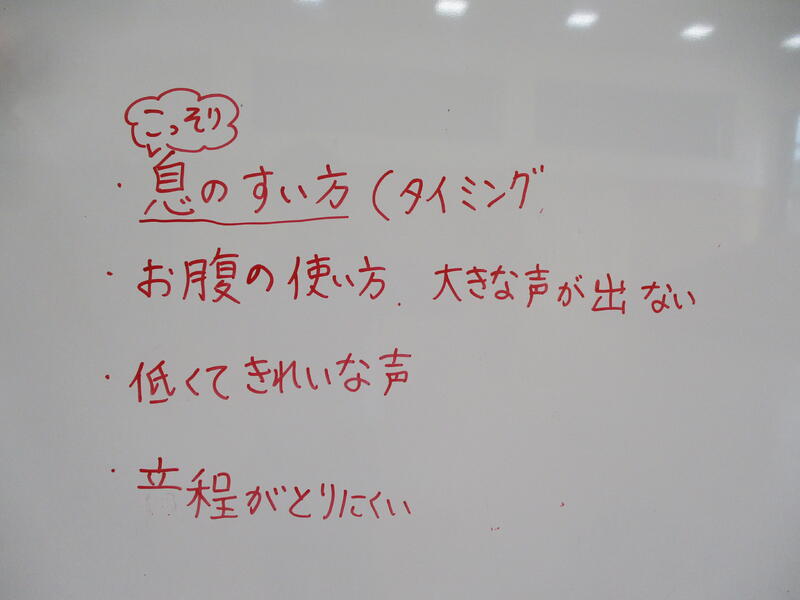 こっそり
・息のすい方(タイミング
・お腹の使い方. 大きな声が出ない
・低くてきれいな声
・音程がとりにくい